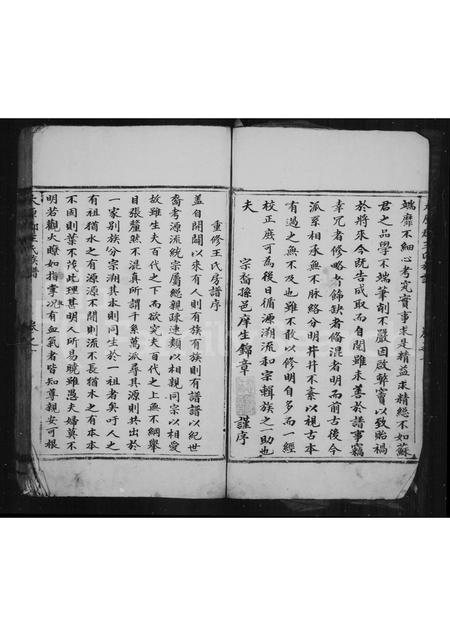 端靡不細心考究實事求是精益求精總不如蘇
君之品學不端筆削不嚴因啟弊竇以致貽禍
於將來今既告成取而自閱雖未善於譜事竊
幸冗者修略者飾缺者備混者明而前古後今
派系相承無不脉絡分明井井不紊以視古本
有過之無不及也雖不敢以修明自多而一經
校正庶可為後日循源溯流和宗輯族之一助也
夫
宗裔孫邑庠生錦章 謹序
重修王氏房譜序
蓋自開闢以來有人則有族有族則有譜譜以紀世
裔考源流統宗屬總親疎連類以相親同宗以相愛
故雖生夫百代之下而欲究夫百代之上無不綱舉
目張釐然不混真所謂千条萬派尋其源則共出於
一家別族分宗溯其本則同生於一祖者矣吁人之
有祖猶水之有源源不開則流不長猶木之有本本
不固則葉不茂此理甚明人所易曉雖愚夫婦莫不
明若觀火瞭如指掌况有血氣者皆知尊親安可根
王氏族譜